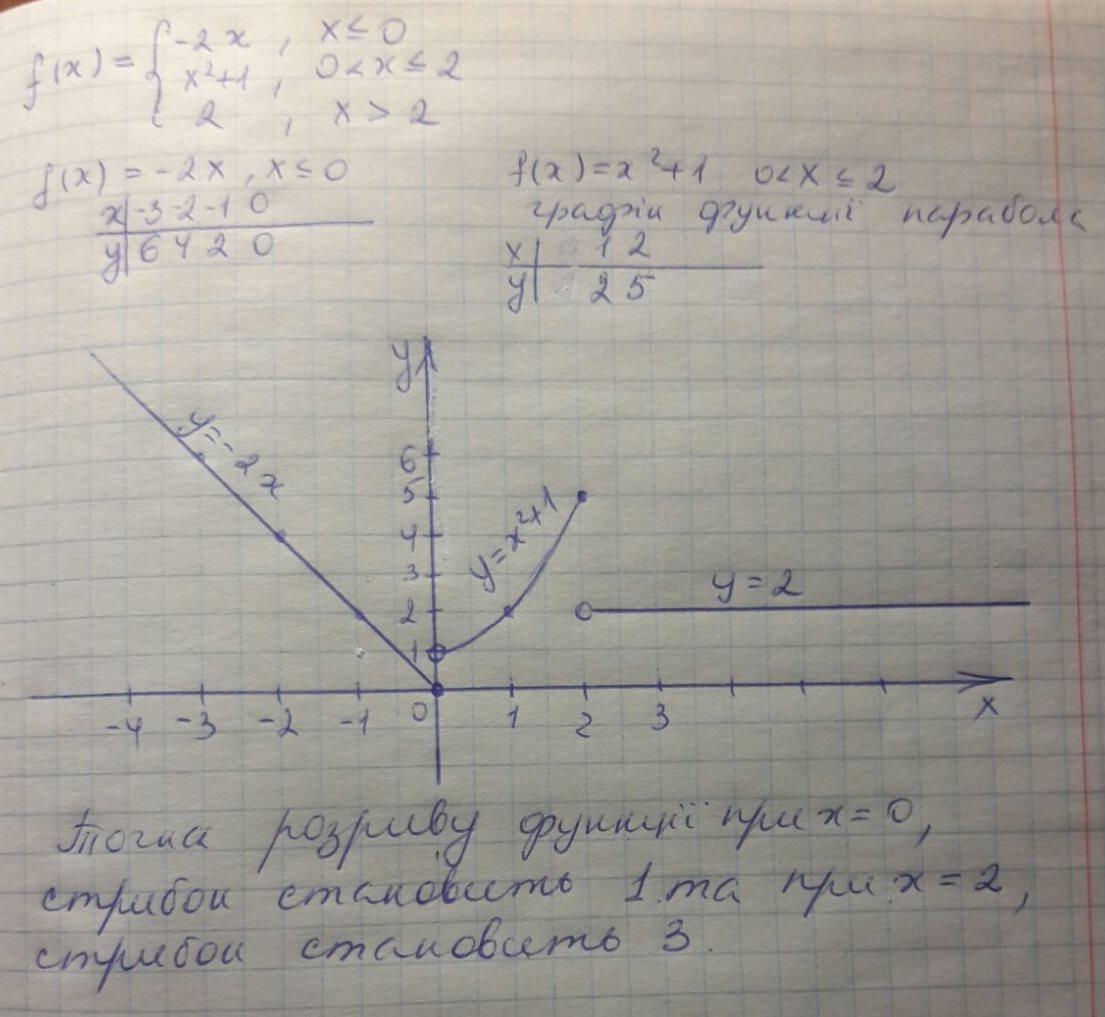 f(x) = { -2x , x ≤ 0
x²+1 , 0 < x ≤ 2
2 , x > 2
f(x) = -2x , x ≤ 0
x -3 -2 -1 0
y 6 4 2 0
f(x) = x²+1 0 < x ≤ 2
графік функції парабола
x 1 2
y 2 5
y
y = -2x
6
5
4
3
2
1
y = x²+1
y = 2
-4 -3 -2 -1 0 1 2 3 x
Точка розриву функції при x = 0,
стрибок становить 1 та при x = 2,
стрибок становить 3.